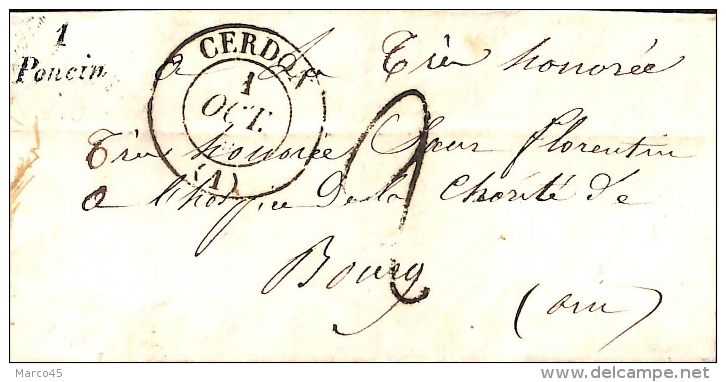 1
Poncin
CERDON
1
OCT.
(1)
2
a La Très honorée
Très honorée Sœur florentin
a l'hospice De la Charité de
Bourg
(ain)
Marco45
delcampe.net